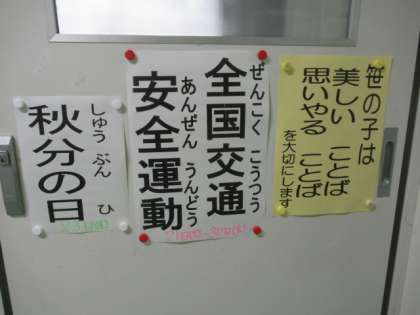 笹の子は
美しい ことば
思いやる ことば
を大切にします
ぜんこく こうつう
全国交通
あんぜん うんどう
安全運動
しゅう ぶん ひ
秋分の日